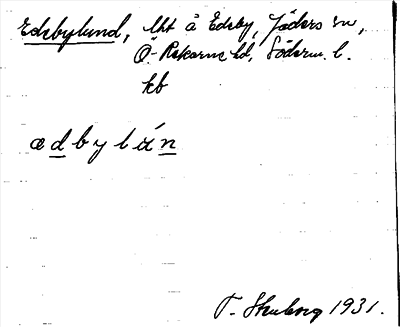 Edebylund, lht å Edeby, Jäders sn,
Ö. Rekarne hd, Söderm. l.
kb
ædbylán
T. Skulerg 1931.